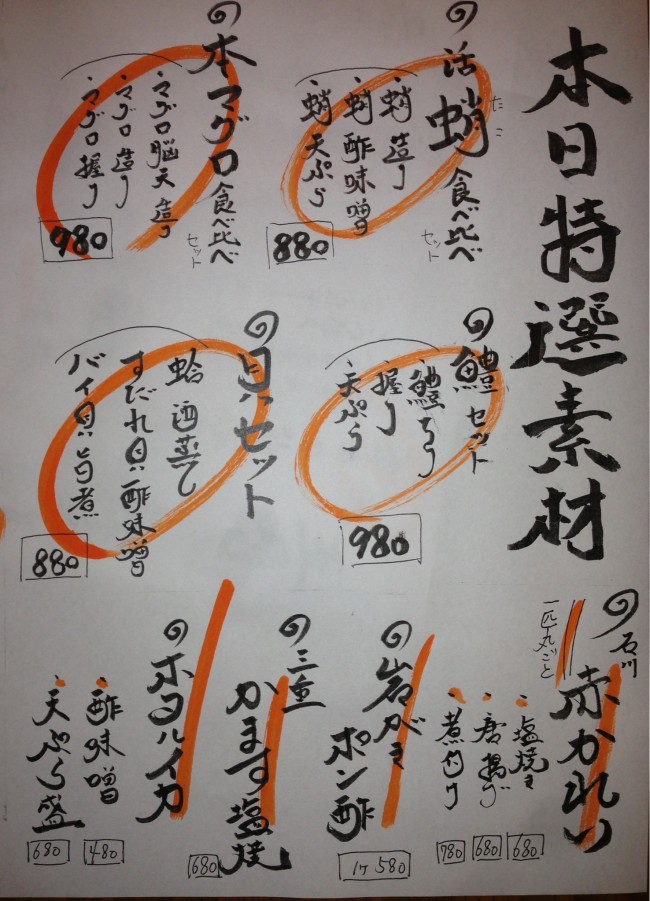 本日特選素材
活蛸食べ比べ
たこ
セット
蛸造り
蛸酢味噌
蛸天ぷら
880
本マグロ食べ比べ
セット
マグロ脳天造り
マグロ造り
マグロ握り
980
鱧セット
鱧ちり
握り
天ぷら
980
貝セット
蛤酒蒸し
すだれ貝酢味噌
バイ貝旨煮
880
石川
赤かれい
一匹丸ごと
塩焼き
680
唐揚げ
680
煮付け
780
岩がき
ポン酢
1ケ 580
三重
かます塩焼
680
ホタルイカ
酢味噌
480
天ぷら盛
680